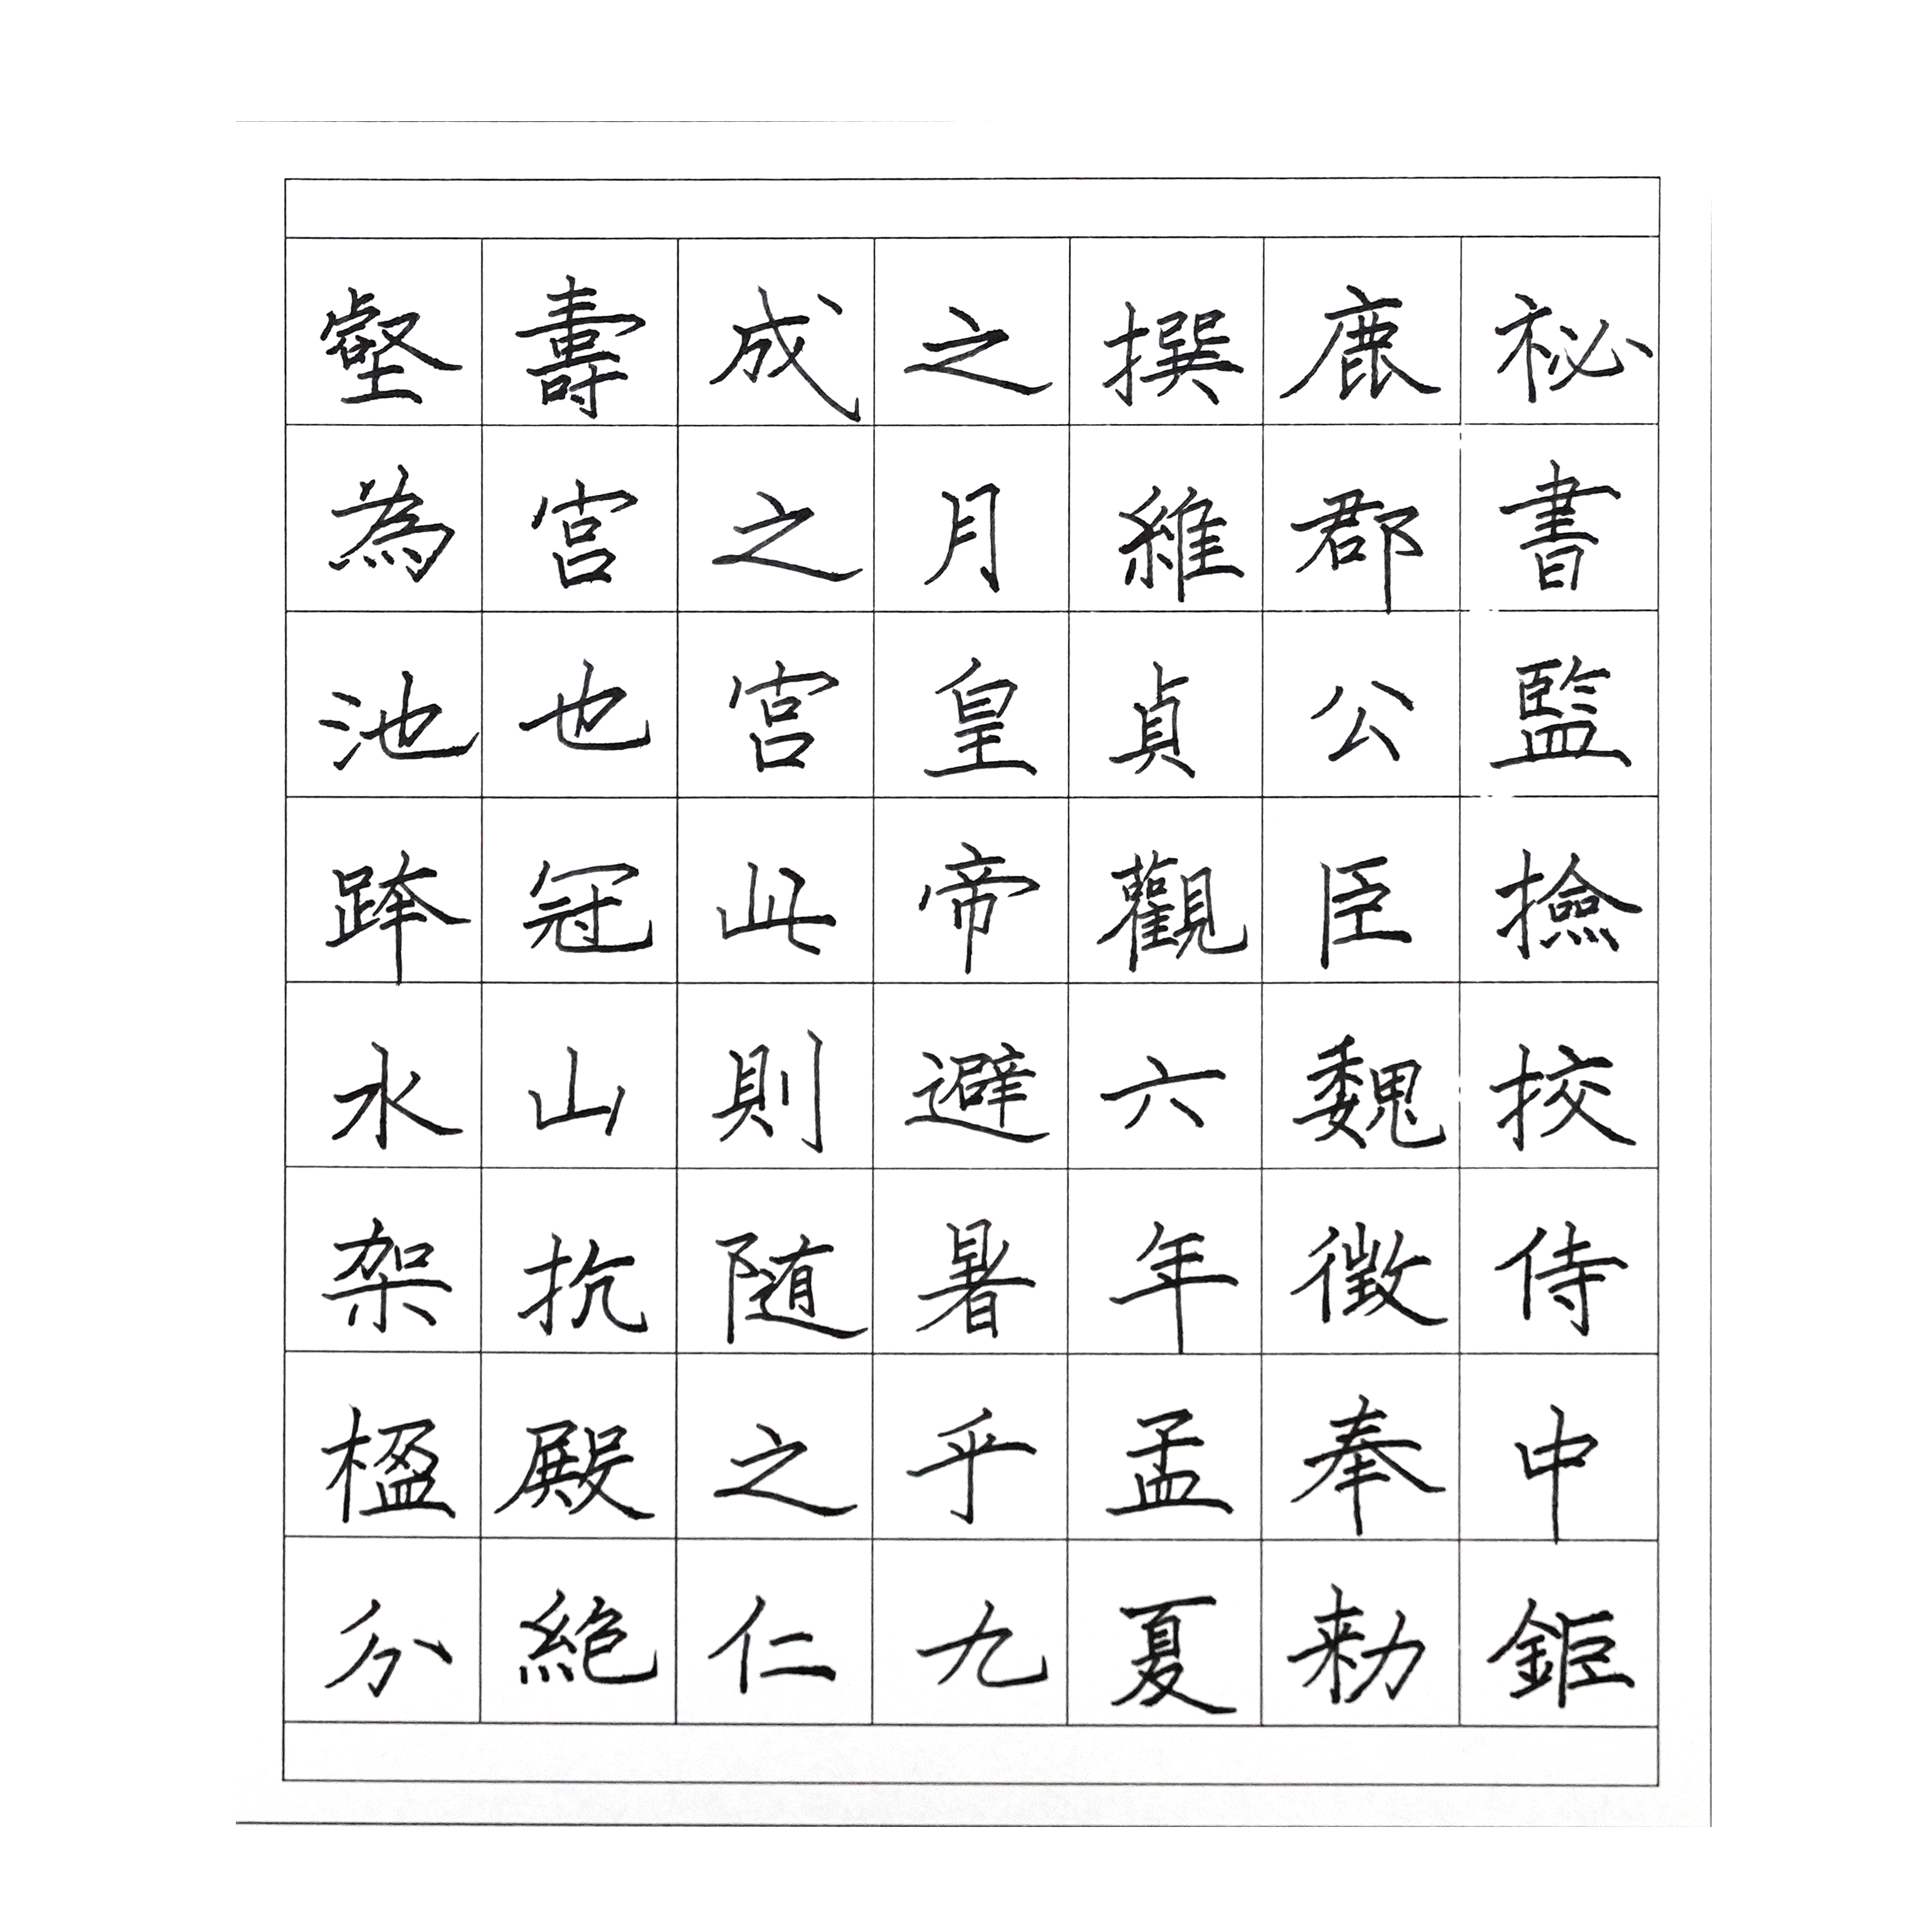 祕書監撿挍侍中鉅
鹿郡公臣魏徵奉勅
撰維貞觀六年孟夏
之月皇帝避暑乎九
成之宮此則随之仁
壽宮也冠山抗殿絶
壑為池跨水架楹分